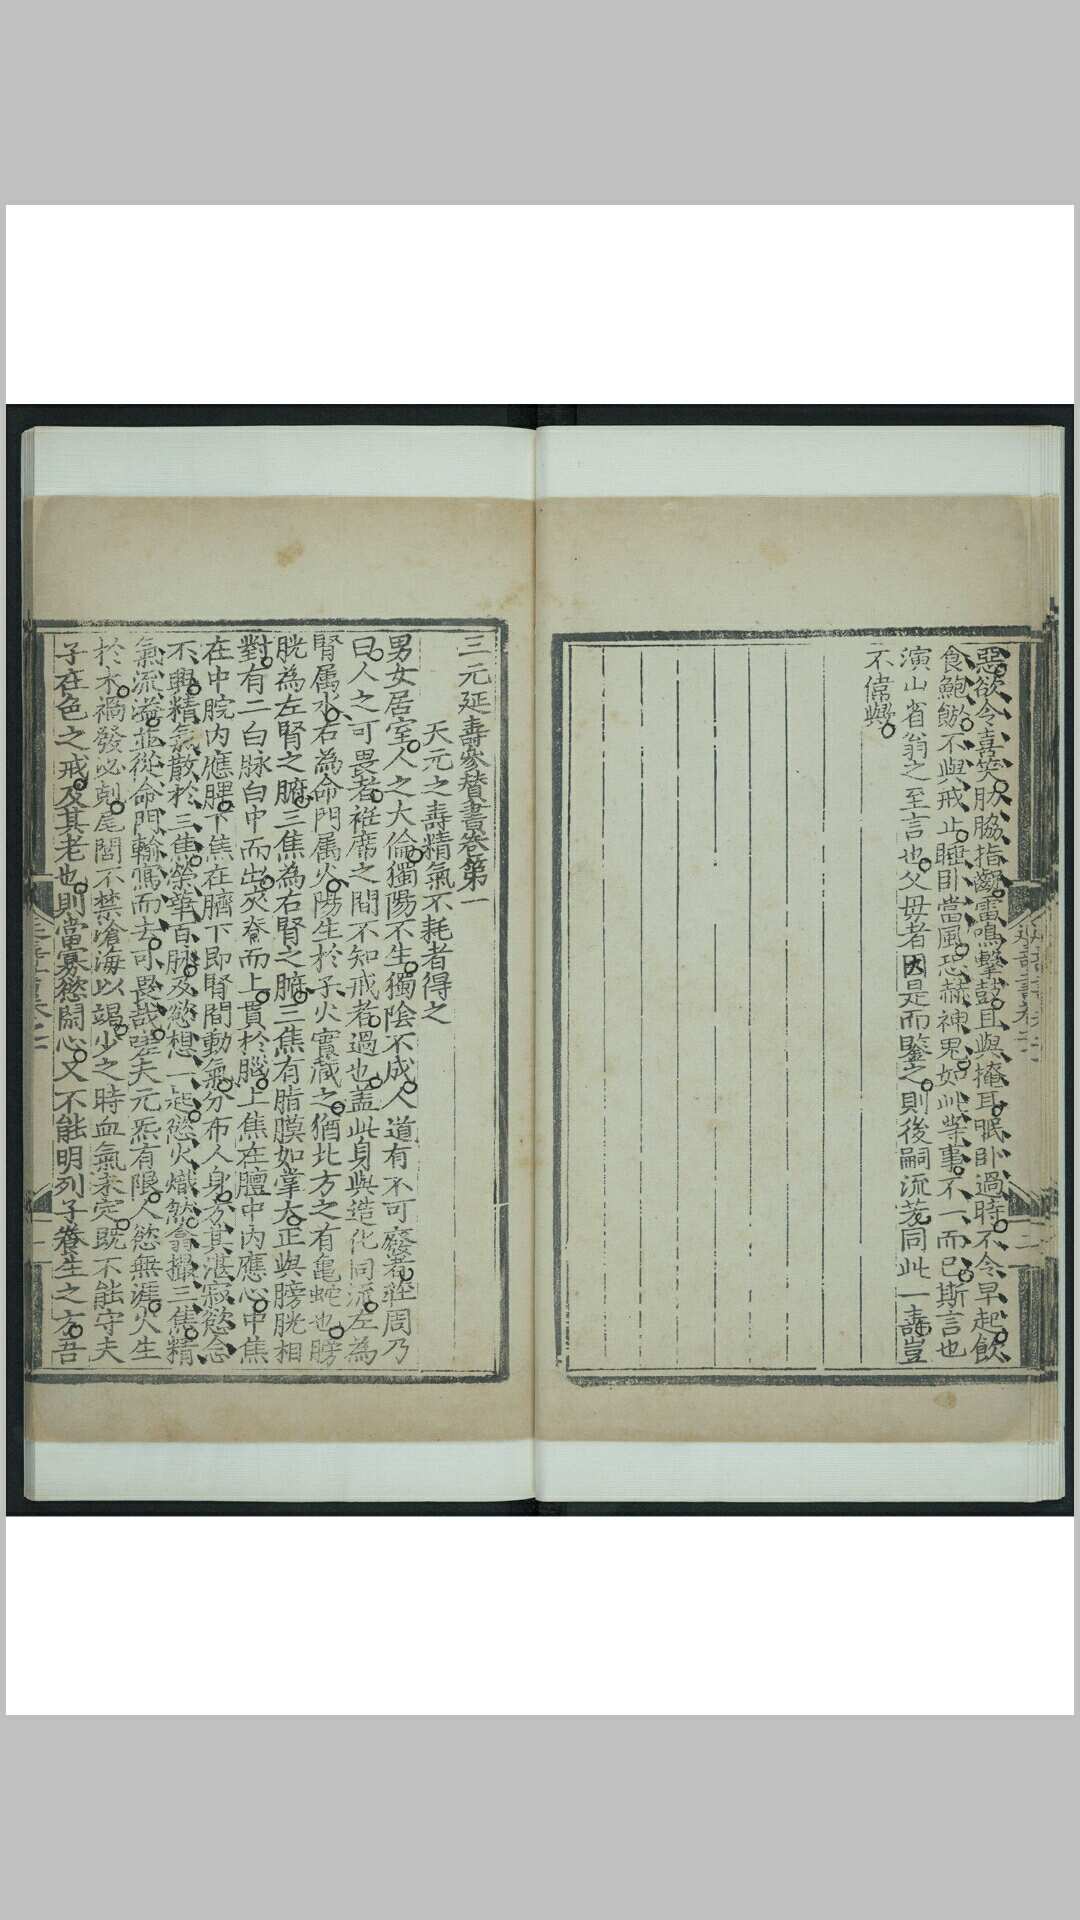 惡欲令喜笑肋脇指齫雷鳴擊鼓且與掩耳眠卧過時不令早起飲
食鮑飫不與戒止睡卧當風恐赫神鬼如此等事不一而已斯言也
演山省翁之至言也父毋者因是而鑒之則後嗣流芳同此一壽豈
不偉歟
三元延壽參賛書卷第一
天元之壽精氣不耗者得之
男女居室人之大倫獨陽不生獨陰不成人道有不可廢者莊周乃
曰人之可畏者袵席之間不知戒者過也盖此身與造化同流左為
腎属水右為命門属火陽生於子火實藏之猶北方之有亀蛇也膀
胱為左腎之腑三焦為右腎之腑三焦有脂膜如掌大正與膀胱相
對有二白脉自中而出夾脊而上貫於腦上焦在膻中内應心中焦
在中脘内應脾下焦在臍下即腎間動氣分布人身方其湛寂慾念
不興精氣散於三焦榮華百脉及慾想一起慾火熾然翕撮三焦精
氣流溢並從命門輸寫而去可畏哉嗟夫元炁有限人慾無涯火生
於木禍發必剋尾閭不禁滄海以竭少之時血氣未定既不能守夫
子在色之戒及其老也則當寡慾閑心又不能明列子養生之方吾